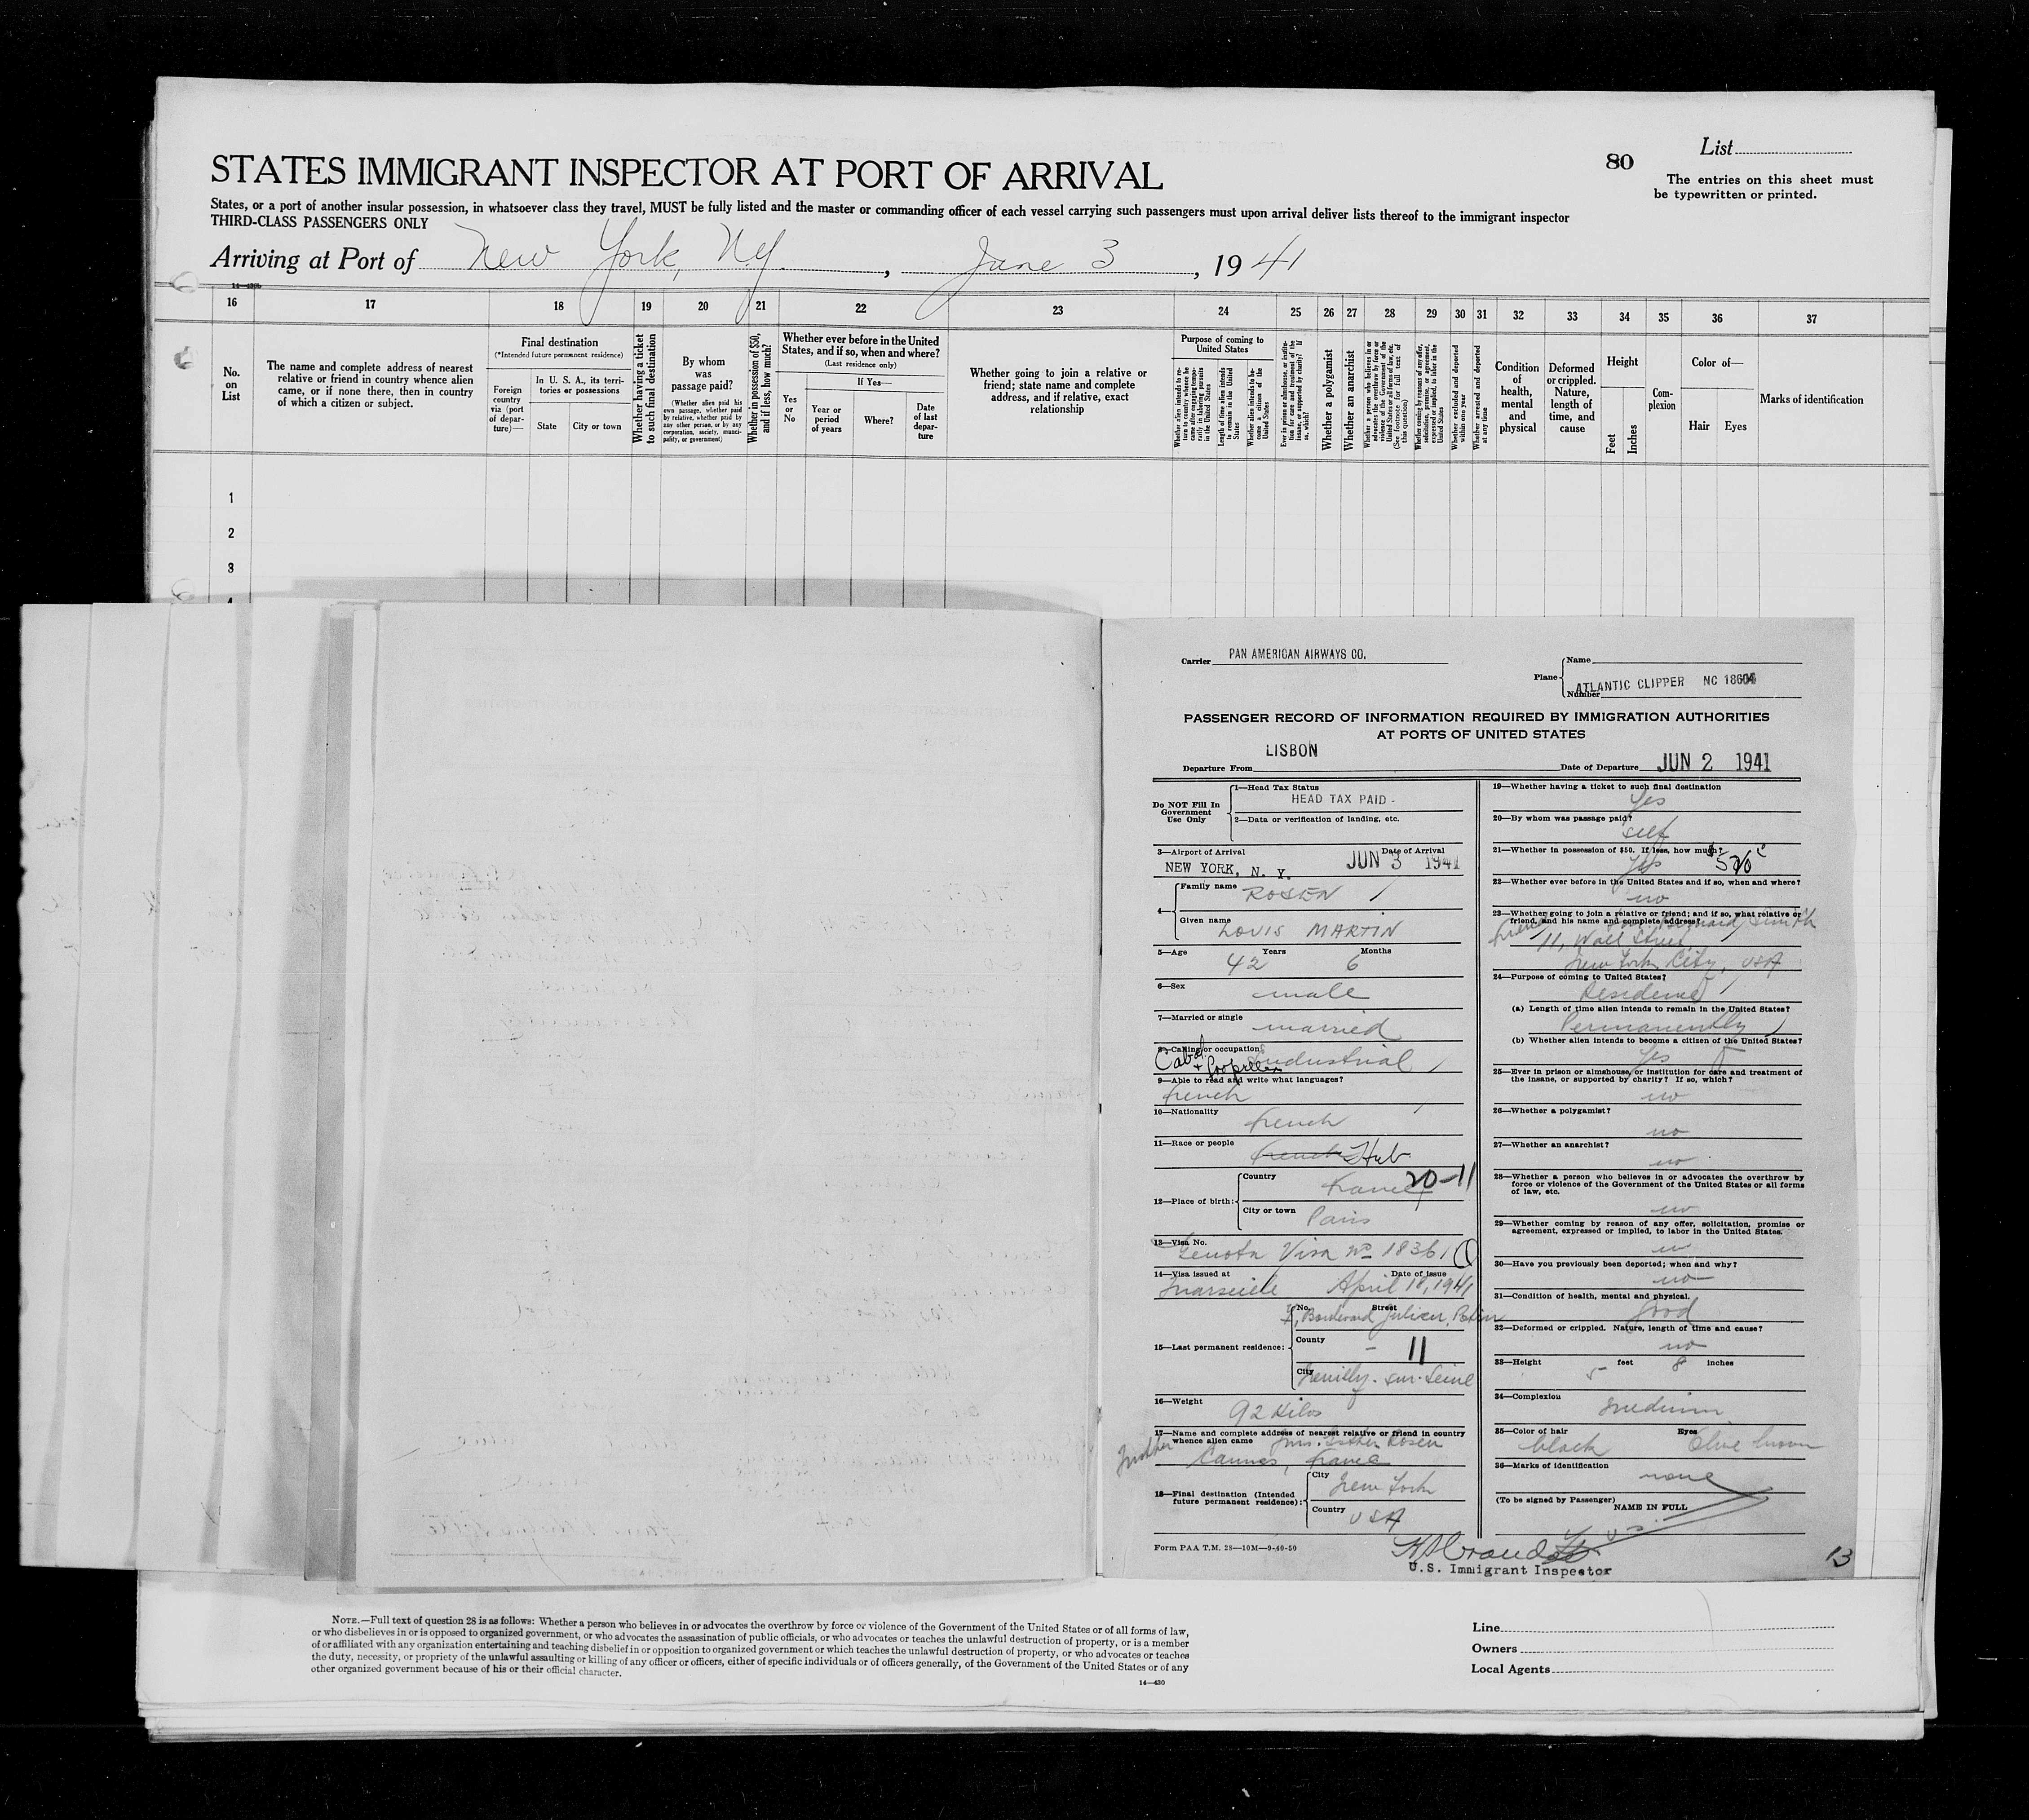 STATES IMMIGRANT INSPECTOR AT PORT OF ARRIVAL
80
List
The entries on this sheet must
be typewritten or printed.
States, or a port of another insular possession, in whatsoever class they travel, MUST be fully listed and the master or commanding officer of each vessel carrying such passengers must upon arrival deliver lists thereof to the immigrant inspector
THIRD-CLASS PASSENGERS ONLY
Arriving at Port of New York, N.Y. , June 3 , 1941
16 17 18 19 20 21 22 23 24 25 26 27 28 29 30 31 32 33 34 35 36 37
No.
on
List
The name and complete address of nearest
relative or friend in country whence alien
came, or if none there, then in country
of which a citizen or subject.
Final destination
(*Intended future permanent residence)
Foreign
country
via (port
of depar-
ture)—
In U. S. A., its terri-
tories or possessions
State
City or town
Whether having a ticket
to such final destination
By whom
was
passage paid?
(Whether alien paid his
own passage, whether paid
by relative, whether paid by
any other person, or by any
corporation, society, munici-
pality, or government)
Whether in possession of $50,
and if less, how much?
Whether ever before in the United
States, and if so, when and where?
(Last residence only)
If Yes—
Yes
or
No
Year or
period
of years
Where?
Date
of last
depar-
ture
Whether going to join a relative or
friend; state name and complete
address, and if relative, exact
relationship
Purpose of coming to
United States
Whether a polygamist
Whether an anarchist
Condition
of
health,
mental
and
physical
Deformed
or crippled.
Nature,
length of
time, and
cause
Height
Feet
Inches
Com-
plexion
Color of—
Hair
Eyes
Marks of identification
1
2
3
4
Carrier PAN AMERICAN AIRWAYS CO.
Plane
Name
Number ATLANTIC CLIPPER NC 18604
PASSENGER RECORD OF INFORMATION REQUIRED BY IMMIGRATION AUTHORITIES
AT PORTS OF UNITED STATES
Departure From LISBON
Date of Departure JUN 2 1941
Do NOT Fill In
Government
Use Only
1—Head Tax Status
HEAD TAX PAID -
2—Data or verification of landing, etc.
3—Airport of Arrival
Date of Arrival
NEW YORK, N. Y.
JUN 3 1941
4—
Family name ROSEN
Given name LOUIS MARTIN
5—Age 42 Years 6 Months
6—Sex male
7—Married or single married
8—Calling or occupation industrial
9—Able to read and write what languages?
french
10—Nationality french
11—Race or people french Heb
12—Place of birth:
Country France 20-11
City or town Paris
13—Visa No. Quota Visa No 1836
14—Visa issued at Marseille
Date of issue April 18, 1941
15—Last permanent residence:
No. Street
Boulevard Julien Potin
County - 11
City Neuilly-sur-Seine
16—Weight 92 Kilos
17—Name and complete address of nearest relative or friend in country
whence alien came Mrs. Esther Rosen
mother Cannes, France
18—Final destination (Intended
future permanent residence):
City New York
Country USA
Form PAA T.M. 28—10M—9-40-50
19—Whether having a ticket to such final destination
Yes
20—By whom was passage paid?
self
21—Whether in possession of $50. If less, how much?
yes
22—Whether ever before in the United States and if so, when and where?
no
23—Whether going to join a relative or friend; and if so, what relative or
friend, and his name and complete address?
friend Bernard Smith
11, Wall Street,
New York City, USA
24—Purpose of coming to United States?
Residence
(a) Length of time alien intends to remain in the United States?
Permanently
(b) Whether alien intends to become a citizen of the United States?
Yes
25—Ever in prison or almshouse, or institution for care and treatment of
the insane, or supported by charity? If so, which?
no
26—Whether a polygamist?
no
27—Whether an anarchist?
no
28—Whether a person who believes in or advocates the overthrow by
force or violence of the Government of the United States or all forms
of law, etc.
no
29—Whether coming by reason of any offer, solicitation, promise or
agreement, expressed or implied, to labor in the United States.
no
30—Have you previously been deported; when and why?
no
31—Condition of health, mental and physical.
good
32—Deformed or crippled. Nature, length of time and cause?
no
33—Height 5 feet 8 inches
34—Complexion medium
35—Color of hair black Eyes Olive brown
36—Marks of identification
none
(To be signed by Passenger)
NAME IN FULL
U.S. Immigrant Inspector
13
NOTE.—Full text of question 28 is as follows: Whether a person who believes in or advocates the overthrow by force or violence of the Government of the United States or of all forms of law,
or who disbelieves in or is opposed to organized government, or who advocates the assassination of public officials, or who advocates or teaches the unlawful destruction of property, or is a member
of or affiliated with any organization entertaining and teaching disbelief in or opposition to organized government or which teaches the unlawful destruction of property, or who advocates or teaches
the duty, necessity, or propriety of the unlawful assaulting or killing of any officer or officers, either of specific individuals or of officers generally, of the Government of the United States or of any
other organized government because of his or their official character.
14—430
Line
Owners
Local Agents